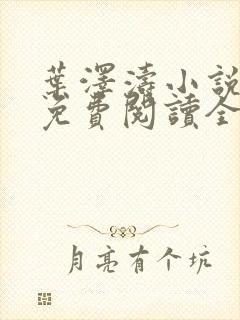 葉澤濤小説
免費閱讀全
月亮有个坑